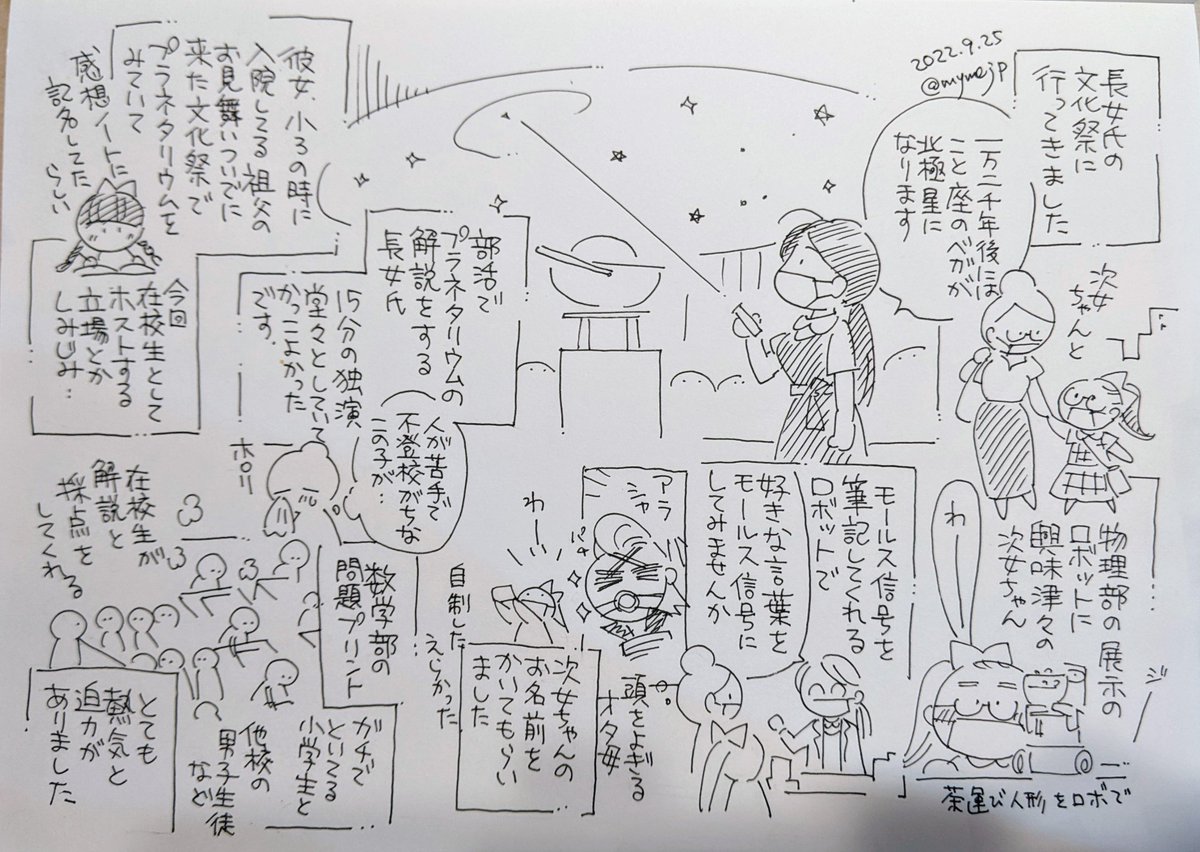 2022.9.25
@mymejp
長女氏の
文化祭に
行ってきました
一万二千年後には
こと座のベガが
北極星に
なります
次女
ちゃんと
部活で
プラネタリウムの
解説をする
長女氏
15分の独演
堂々としていて
かっこよかった
です。
人が苦手で
不登校がちな
この子が…
ホロリ
彼女、小3の時に
入院してる祖父の
お見舞いついでに
来た文化祭で
プラネタリウムを
みていて
感想ノートに
記名してた
らしい
今回
在校生として
ホストする
立場とか
しみじみ…
物理部の展示の
ロボットに
興味津々の
次女ちゃん
わ
ジー
茶運び人形をロボで
モールス信号を
筆記してくれる
ロボットで
好きな言葉を
モールス信号に
してみませんか
アラ
シャ
頭をよぎる
オタ母
自制した
えらかった
わー
パァ
次女ちゃんの
お名前を
かいてもらい
ました
数学部の
問題プリント
ガチで
といてる
小学生と
他校の
男子生徒
など
在校生が
解説と
採点を
してくれる
とても
熱気と
迫力が
ありました